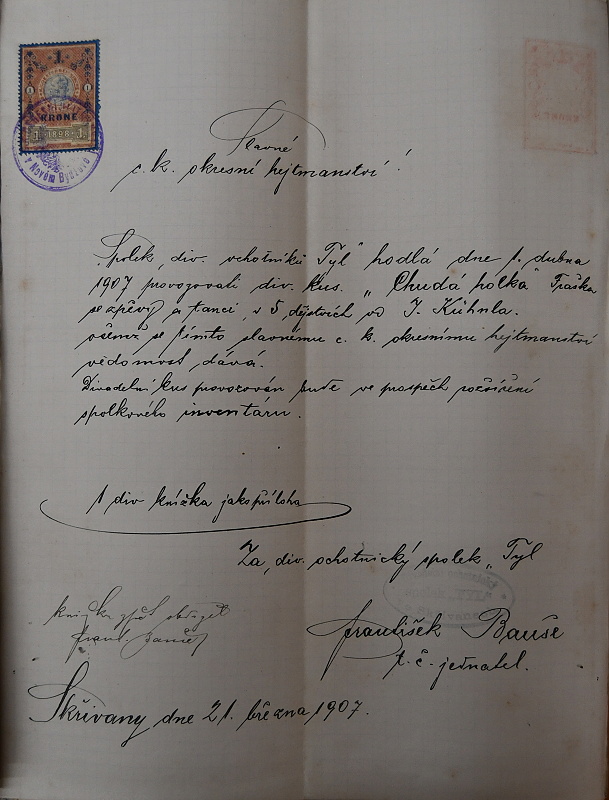 1
1 1
KRONE
1 1898 1
v Novém Bydžově
Slavné
c. k. okresní hejtmanství!
Spolek „div. ochotníků Tyl" hodlá dne 1. dubna
1907 provozovati div. kus. „Chudá holka" Fraška
se zpěvy a tanci, v 5 dějstvích od J. Kühnla.
očemž se tímto slavnému c. k. okresnímu hejtmanství
vědomost dává.
Divadelní kus provozován bude ve prospěch rozšíření
spolkového inventáru.
1 div knížka jako příloha
Za „div. ochotnický spolek „Tyl
knížku zpět obdržel
František Bauše
t. č. jednatel.
Skřivany dne 21. března 1907.